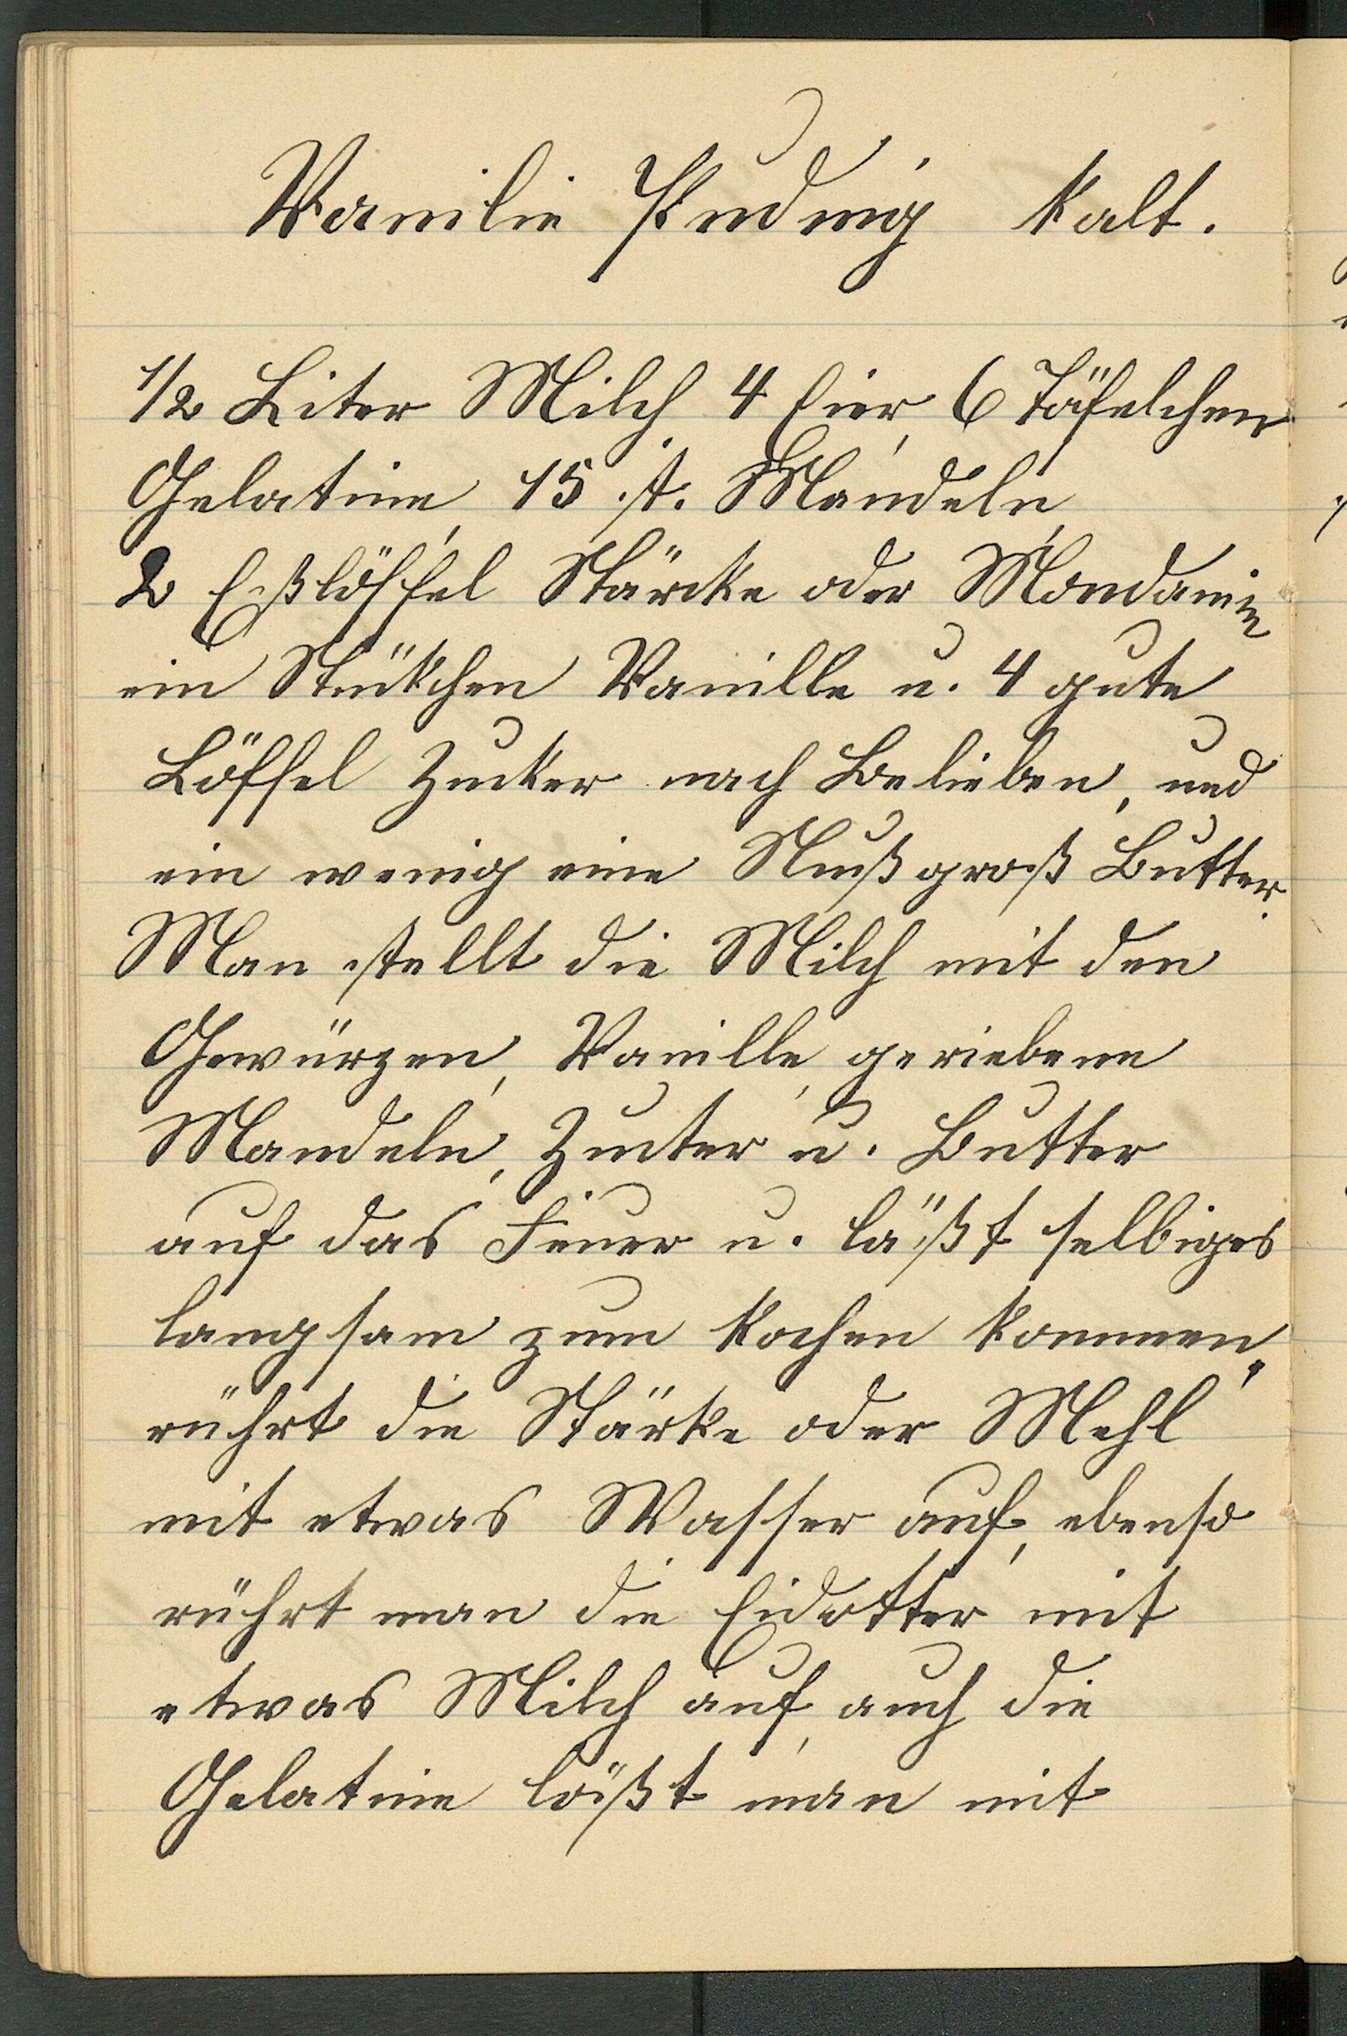 Vanilie Puding kalt.
1/2 Liter Milch 4 Eier, 6 Täfelchen
Gelatine, 15 st. Mandeln,
2 Eßlöffel Stärcke oder Mondamin
ein Stükchen Vanille u. 4 gute
Löffel Zucker nach Belieben, und
ein wenig eine Nußgroß Butter.
Man stellt die Milch mit den
Gewürzen, Vanille, geriebene
Mandeln, Zucker u. Butter
auf das Feuer u. läßt selbiges
langsam zum kochen kommen,
rührt die Stärke oder Mehl
mit etwas Wasser auf, ebenso
rührt man die Eidotter mit
etwas Milch auf, auch die
Gelatine lößt man mit